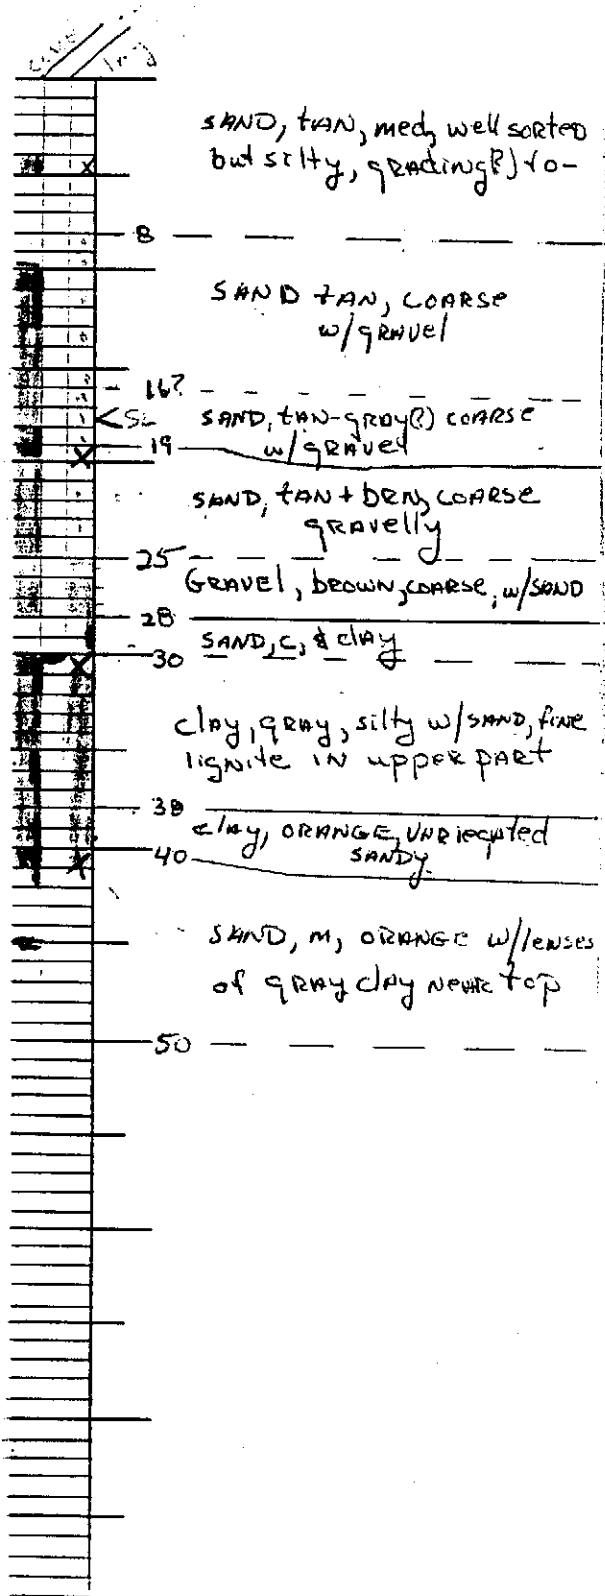 SAND, TAN, med, well sorted
but silty, grading(?) to-
8
SAND TAN, COARSE
w/gravel
16?
SL
SAND, TAN-GRAY(?) COARSE
w/gravel
19
SAND, TAN + BRN, COARSE
gravelly
25
GRAVEL, BROWN, COARSE, w/SAND
28
SAND, C, & clay
30
clay, gray, silty w/SAND, fine
lignite IN upper part
38
clay, ORANGE, VARIEGATED
SANDY
40
SAND, M, ORANGE w/lenses
of gray clay near top
50